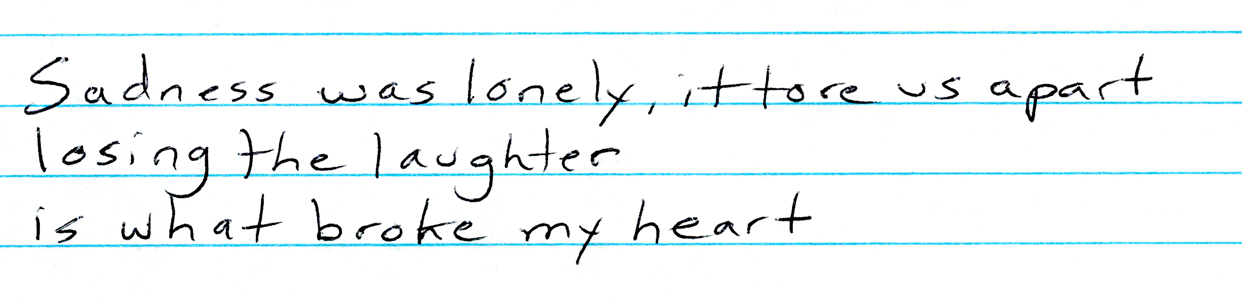 Sadness was lonely, it tore us apart
losing the laughter
is what broke my heart